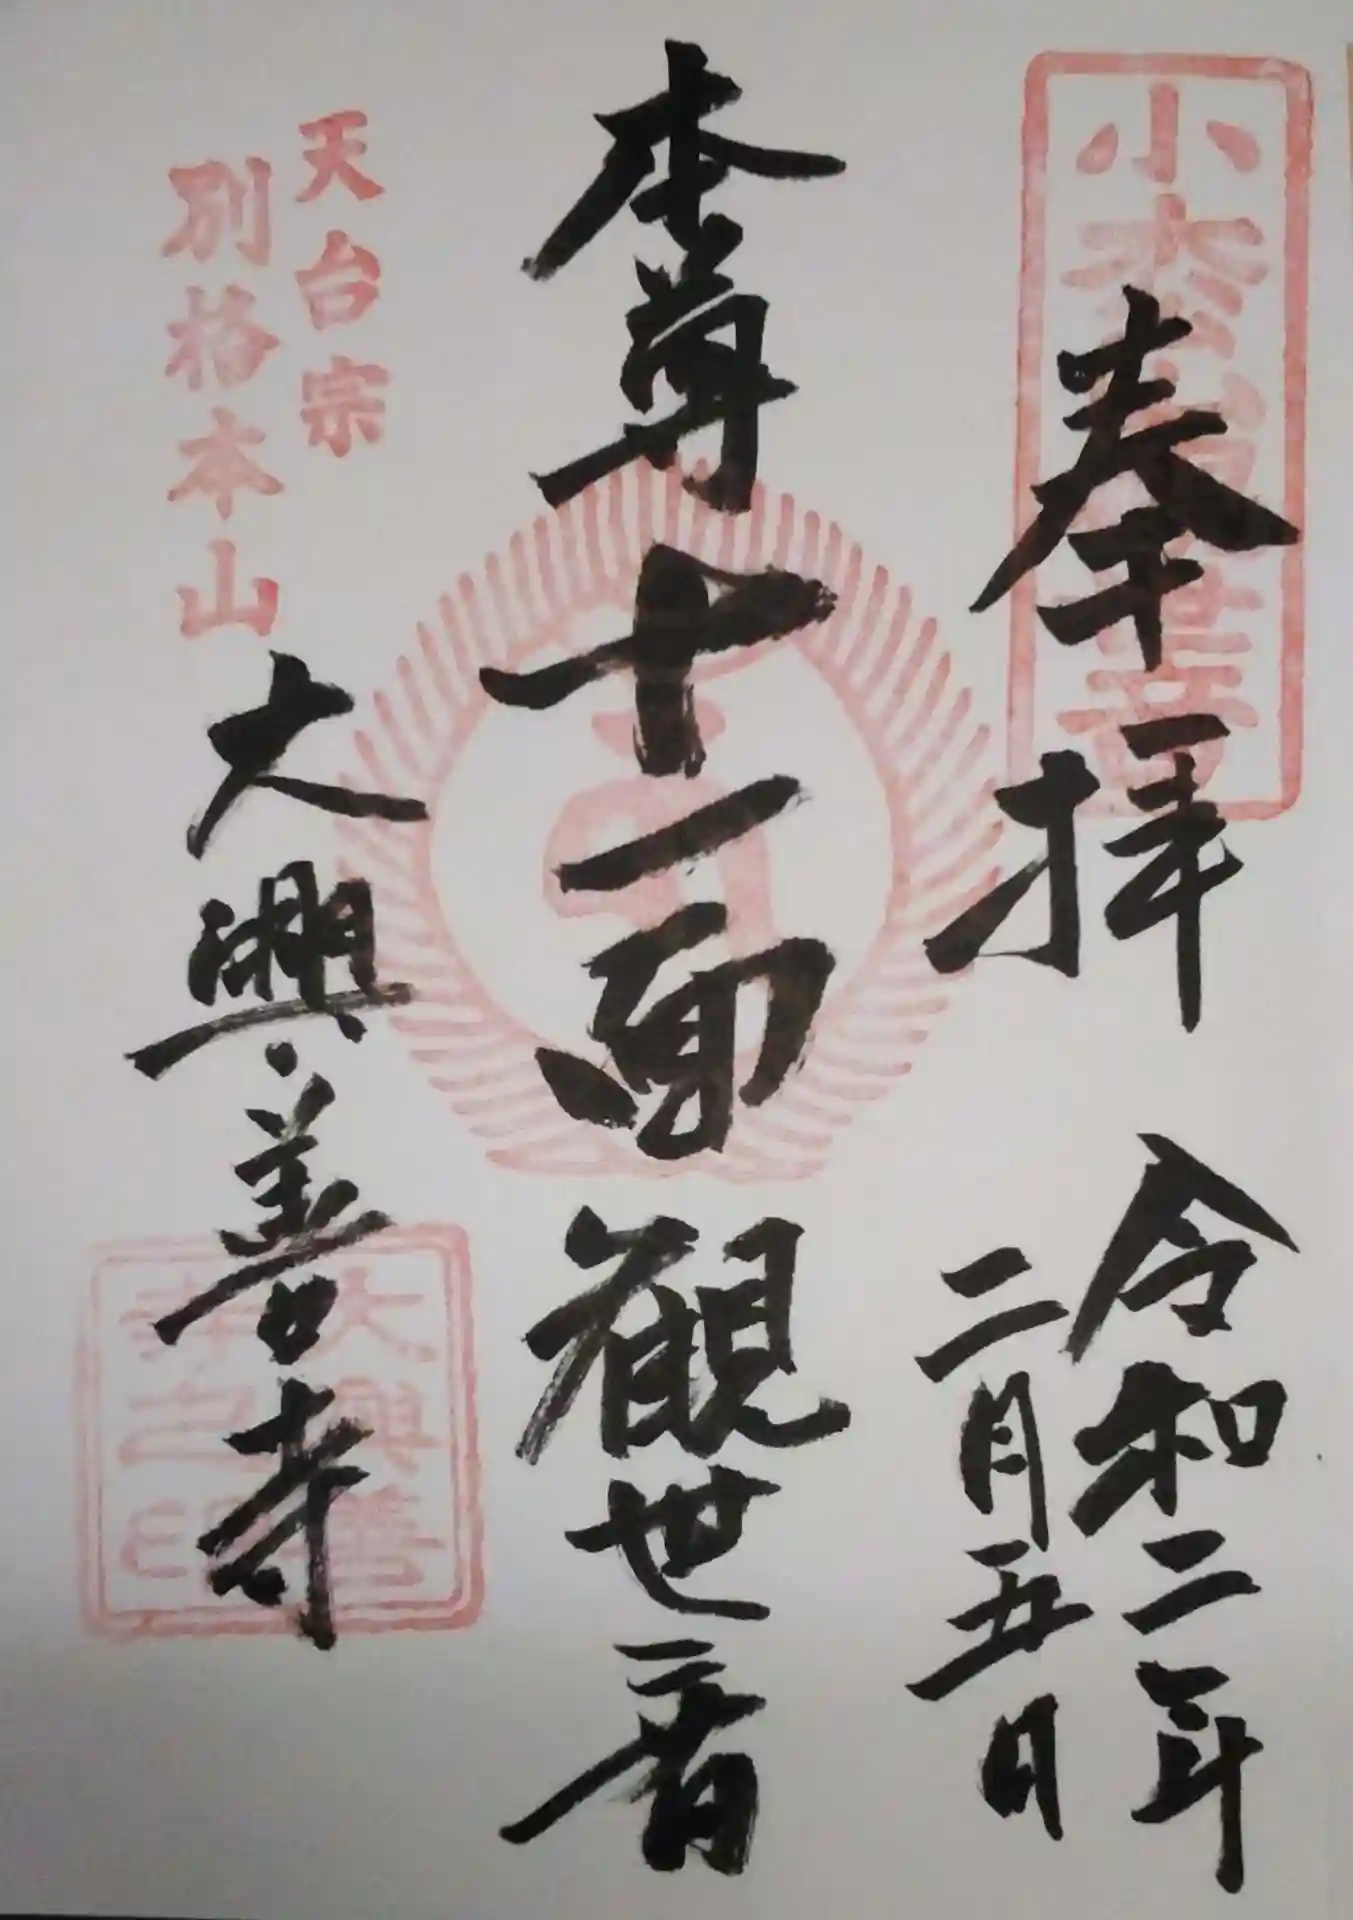 小松
奉拝
令和二年
二月五日
本尊十一面観世音
天台宗
別格本山
大興善寺
大興善
寺之印